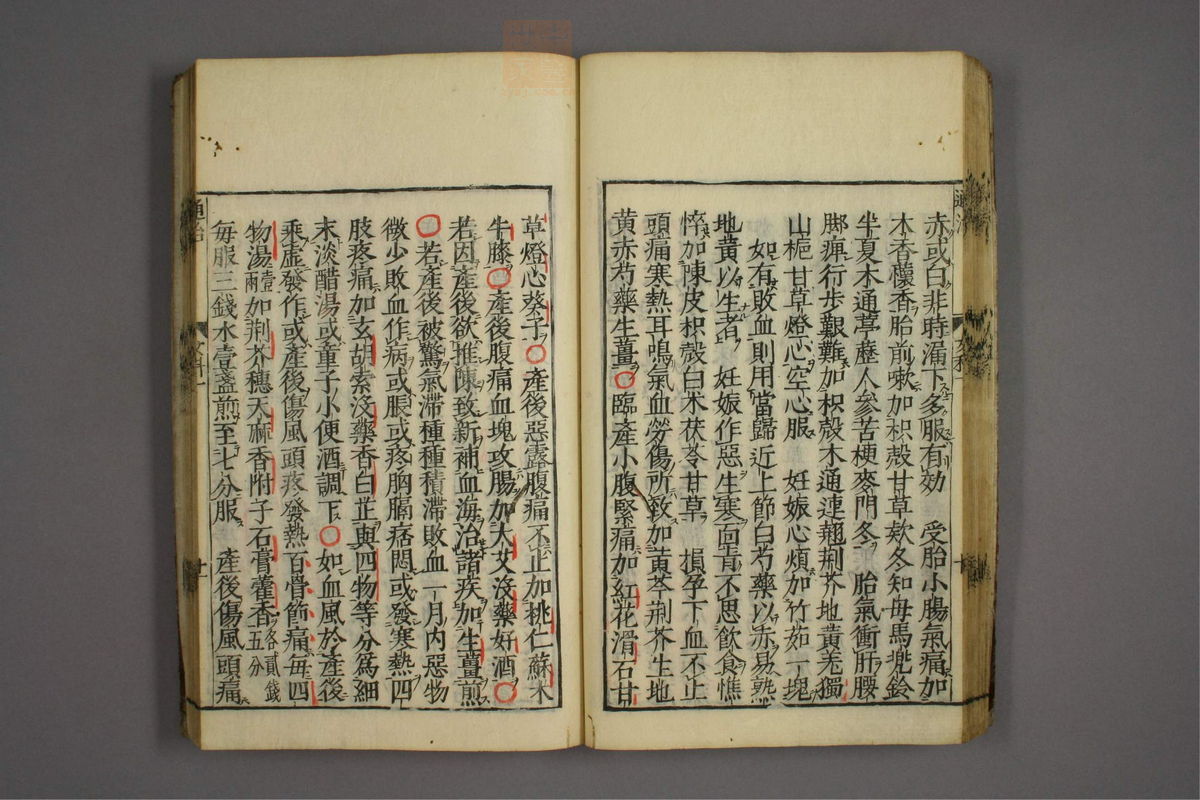 赤或白非時漏下多服有効　受胎小腸氣痛加
木香𣞀香胎前嗽加枳殻甘草欵冬知母馬兠鈴
半夏木通葶藶人參苦梗麥門冬　胎氣衝肝腰
脚痺行步艱難加枳殻木通連翹荆芥地黄羌獨
山梔甘草燈心空心服　妊娠心煩加竹茹一塊
如有敗血則用當歸近上節白芍藥以赤易熟
地黄以生者　妊娠作惡生寒面青不思飲食憔
悴加陳皮枳殻白术茯苓甘草　損孕下血不止
頭痛寒熱耳鳴氣血勞傷所致加黄芩荆芥生地
黄赤芍藥生薑○臨產小腹緊痛加紅花滑石甘
草燈心葵子○產後惡露腹痛不止加桃仁蘇木
牛膝○產後腹痛血塊攻腸加大艾沒藥好酒○
若因產後欲推陳致新補血海治諸疾加生薑煎
○若產後被驚氣滯種種積滯敗血一月内惡物
微少敗血作病或脹或疼胸膈痞悶或發寒熱四
肢疼痛加玄胡索沒藥香白芷與四物等分爲細
末淡醋湯或童子小便酒調下○如血風於產後
乘虛發作或產後傷風頭疼發熱百骨節痛每四
物湯壹兩加荆芥穗天麻香附子石膏藿香各貳錢五分
每服三錢水壹盞煎至七分服　產後傷風頭痛